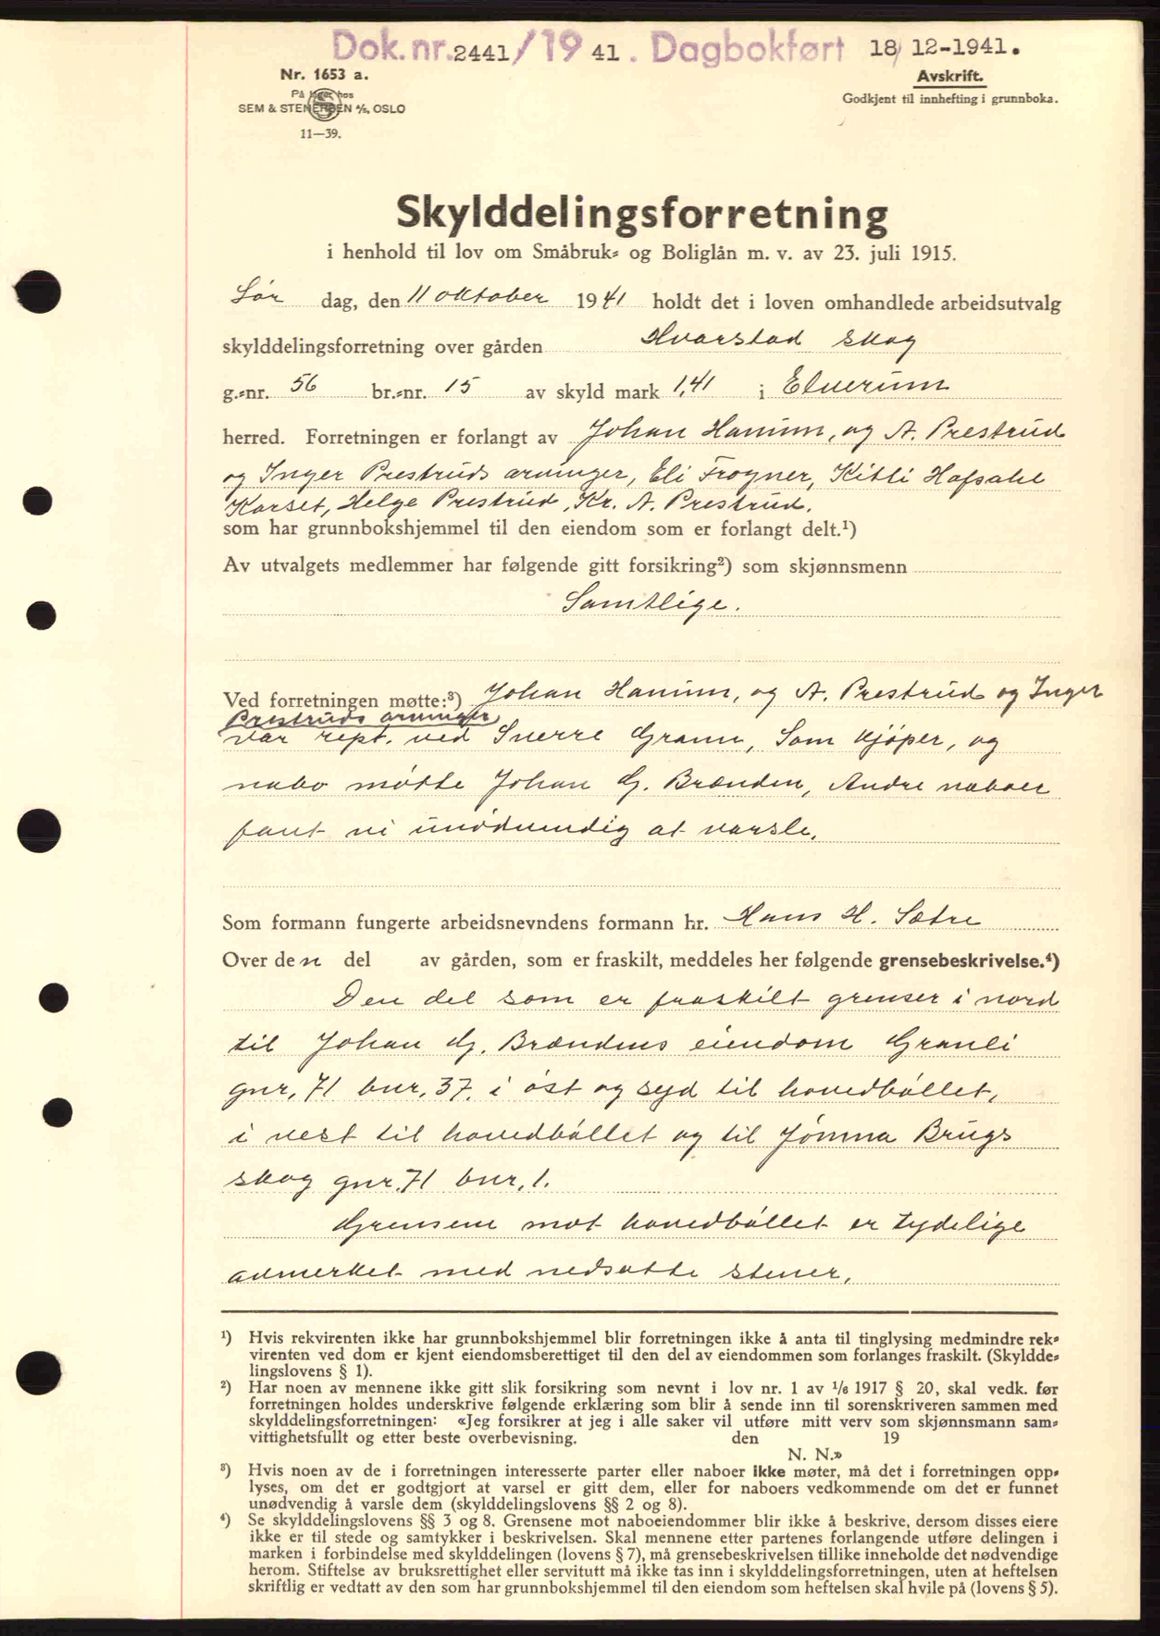 Dok.nr. 2441/19 41. Dagbokført 18/12-1941.
Nr. 1653 a.
Avskrift.
På lager hos
SEM & STENERSEN A/S, OSLO
Godkjent til innhefting i grunnboka.
11—39.
Skylddelingsforretning
i henhold til lov om Småbruk- og Boliglån m. v. av 23. juli 1915.
Lør dag, den 11 oktober 1941 holdt det i loven omhandlede arbeidsutvalg
skylddelingsforretning over gården Hvarstad skog
g.-nr. 56 br.-nr. 15 av skyld mark 1,41 i Elverum
herred. Forretningen er forlangt av Johan Hanum, og A. Prestrud
og Inger Prestruds arvinger, Eli Frogner, Kitti Hafsahl
Karset, Helge Prestrud, Kr. A. Prestrud.
som har grunnbokshjemmel til den eiendom som er forlangt delt.¹)
Av utvalgets medlemmer har følgende gitt forsikring²) som skjønnsmenn
Samtlige.
Ved forretningen møtte:³) Johan Hanum, og A. Prestrud og Inger
Prestruds arvinger
var rept. ved Sverre Gram, Som kjøper, og
nabo møtte Johan G. Brænden, Andre naboer
fant vi unødvendig at varsle.
Som formann fungerte arbeidsnevndens formann hr. Hans H. Sætre
Over den del av gården, som er fraskilt, meddeles her følgende grensebeskrivelse.⁴)
Den del som er fraskilt grenser i nord
til Johan G. Brændens eiendom Granli
gnr. 71 bnr. 37. i øst og syd til hovedbøllet,
i vest til hovedbøllet og til Jømna Brugs
skog gnr. 71 bnr. 1.
Grensene mot hovedbøllet er tydelige
avmerket med nedsatte stener.
¹) Hvis rekvirenten ikke har grunnbokshjemmel blir forretningen ikke å anta til tinglysing medmindre rek-
virenten ved dom er kjent eiendomsberettiget til den del av eiendommen som forlanges fraskilt. (Skyldde-
lingslovens § 1).
²) Har noen av mennene ikke gitt slik forsikring som nevnt i lov nr. 1 av 1/6 1917 § 20, skal vedk. før
forretningen holdes underskrive følgende erklæring som blir å sende inn til sorenskriveren sammen med
skylddelingsforretningen: «Jeg forsikrer at jeg i alle saker vil utføre mitt verv som skjønnsmann sam-
vittighetsfullt og etter beste overbevisning. den 19
N. N.»
³) Hvis noen av de i forretningen interesserte parter eller naboer ikke møter, må det i forretningen opp-
lyses, om det er godtgjort at varsel er gitt dem, eller for naboers vedkommende om det er funnet
unødvendig å varsle dem (skylddelingslovens §§ 2 og 8).
⁴) Se skylddelingslovens §§ 3 og 8. Grensene mot naboeiendommer blir ikke å beskrive, dersom disses eiere
ikke er til stede og samtykker i beskrivelsen. Skal mennene etter partenes forlangende utføre delingen i
marken i forbindelse med skylddelingen (lovens § 7), må grensebeskrivelsen tillike inneholde det nødvendige
herom. Stiftelse av bruksrettighet eller servitutt må ikke tas inn i skylddelingsforretningen, uten at heftelsen
skriftlig er vedtatt av den som har grunnbokshjemmel til den eiendom som heftelsen skal hvile på (lovens § 5).